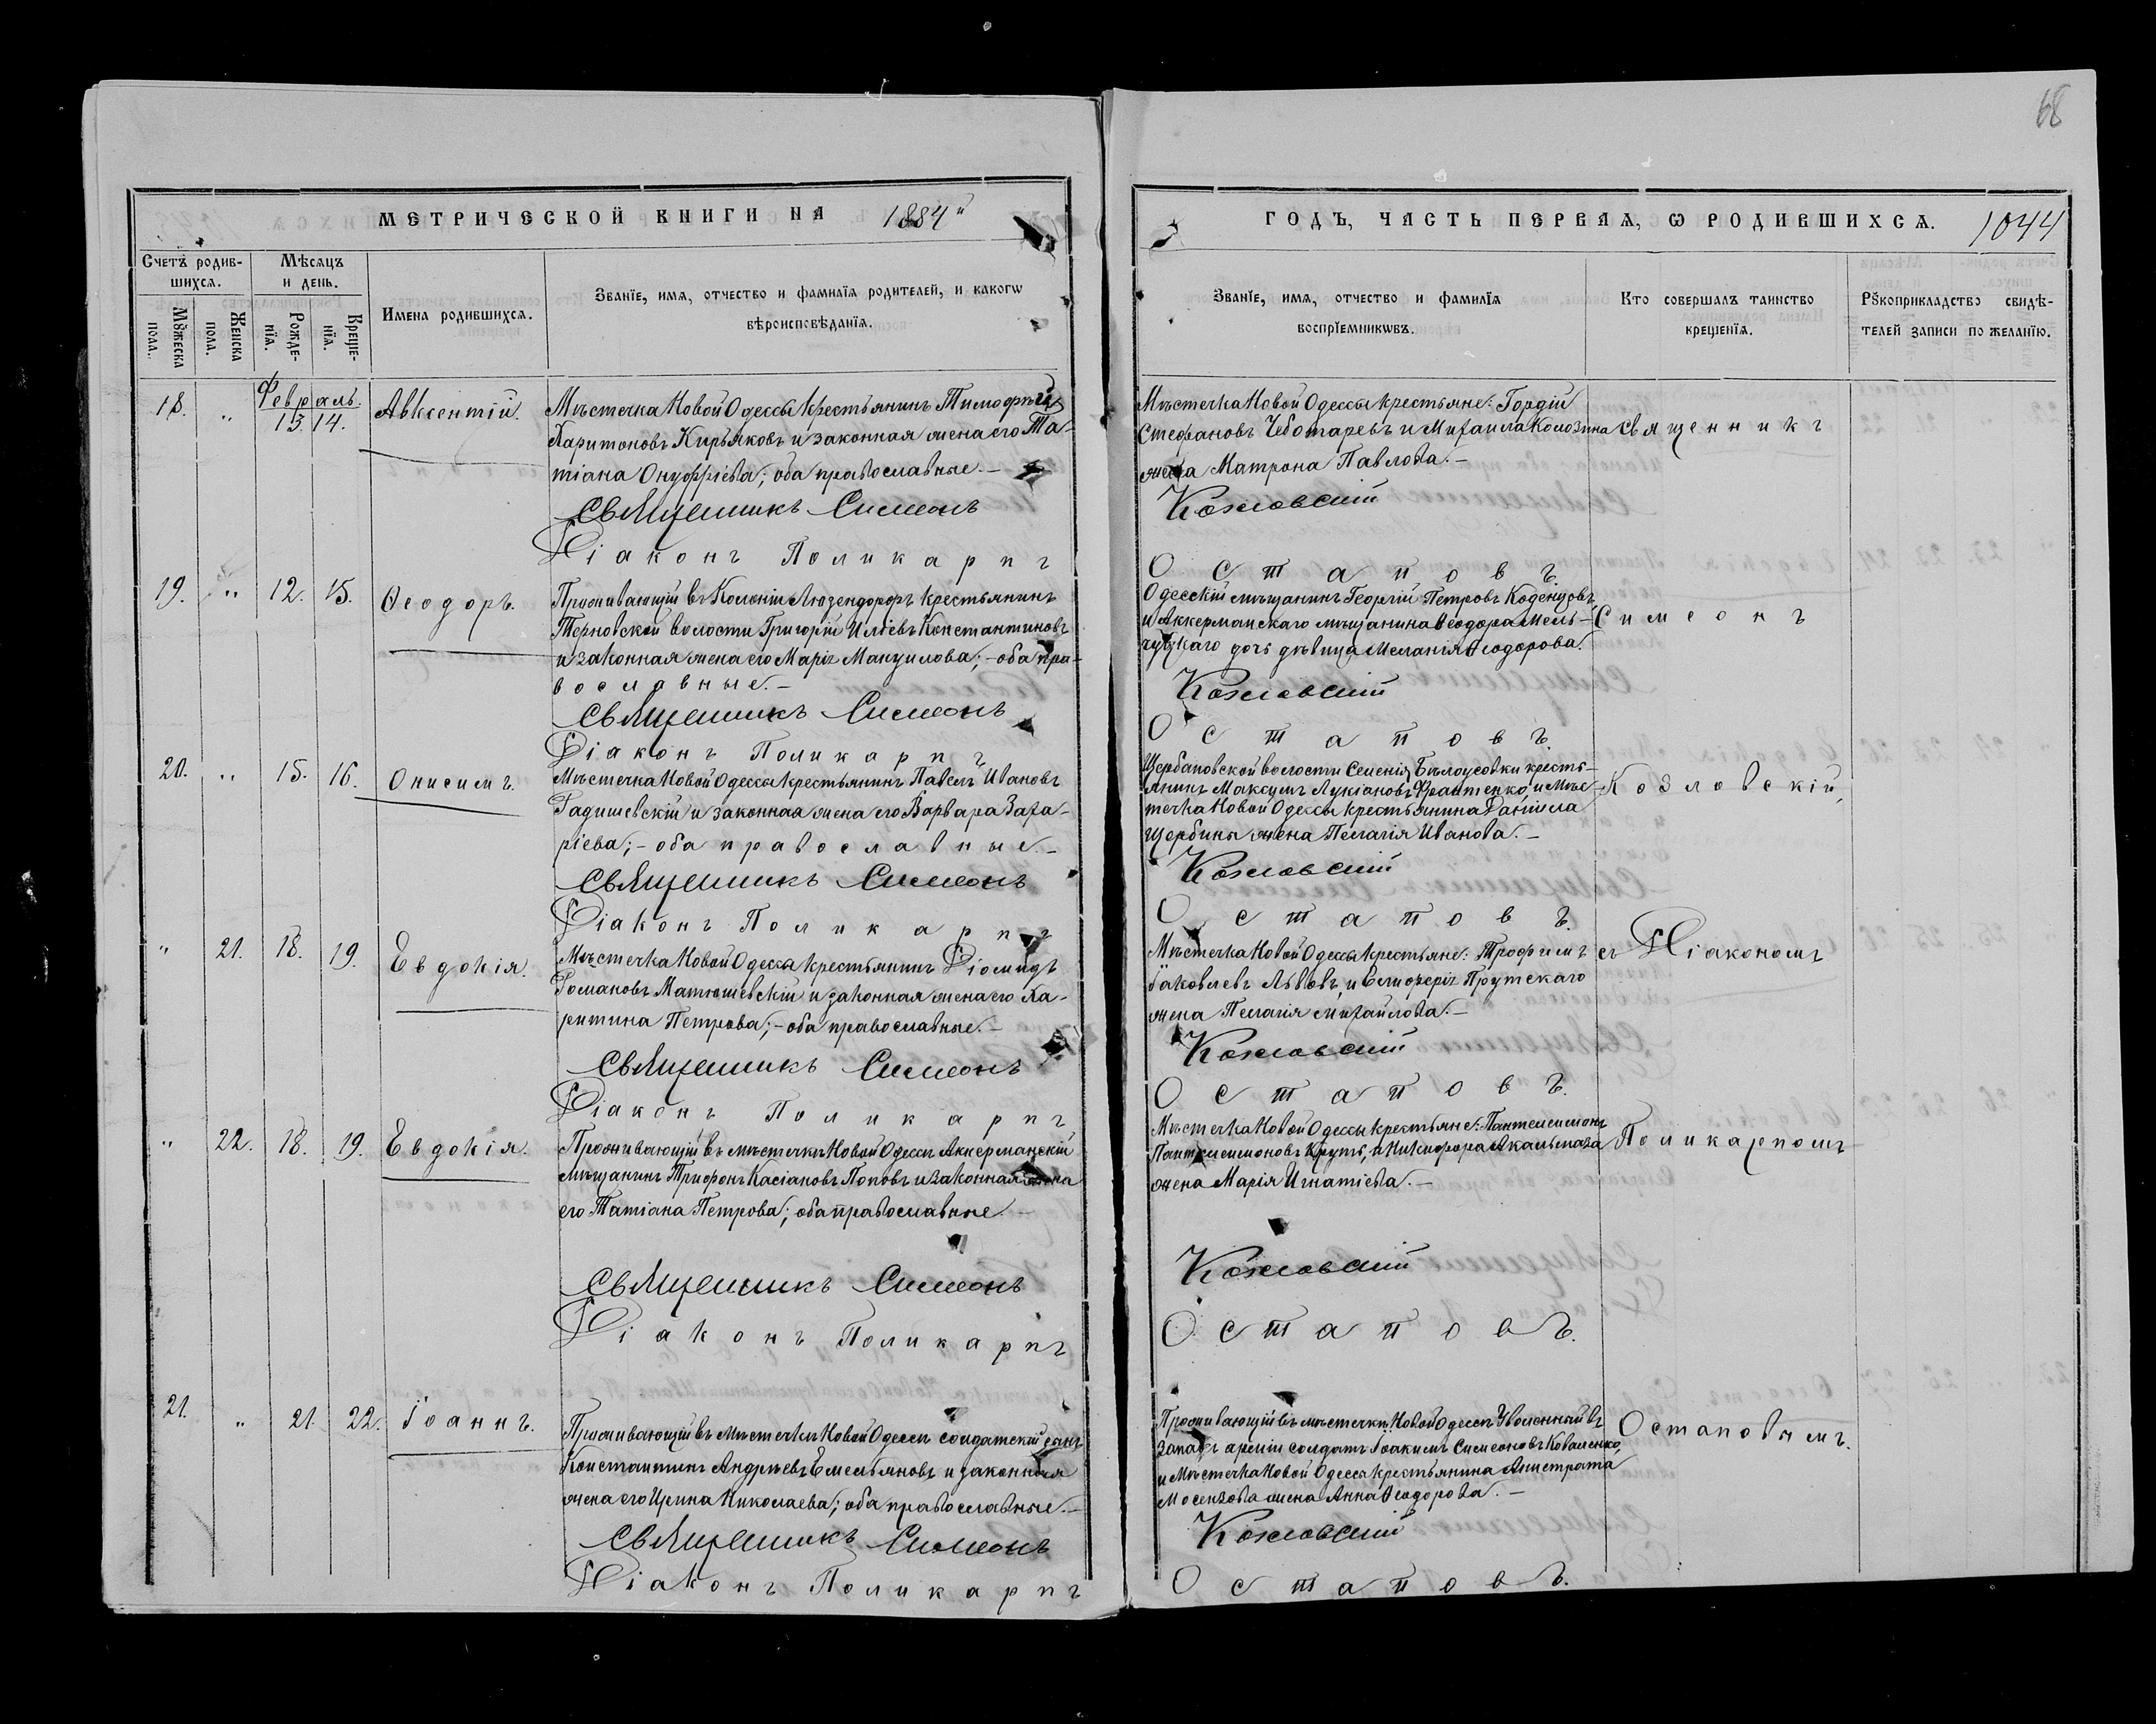 68
МЕТРИЧЕСКОЙ КНИГИ НА 1884й
Счетъ родив-
шихся.
Мѣсяцъ
и день.
Мꙋжеска
пола.
Женска
пола.
Рожде-
нїя.
Креще-
нїя.
Имена родившихся.
Званїе, имя, отчество и фамилїя родителей, и какогѡ
вѣроисповѣданїя.
Февраль.
18. " 13. 14. Авксентій.
Мѣстечка Новой Одессы крестьянинъ Тимофѣй
Харитоновъ Кирьяковъ и законная жена его Та-
тіана Онуфріева; оба православные.-
Священникъ Симеонъ
Діаконъ Поликарпъ
19. " 12. 15. Ѳеодоръ.
Проживающій въ Колоніи Люзендорфъ крестьянинъ
Терновской волости Григорій Иліевъ Константиновъ
и законная жена его Марія Мануилова;- оба пра-
вославные.-
Священникъ Симеонъ
Діаконъ Поликарпъ
20. " 15. 16. Онисимъ.
Мѣстечка Новой Одессы крестьянинъ Павелъ Ивановъ
Гадишевскій и законная жена его Варвара Заха-
ріева;- оба православные.-
Священникъ Симеонъ
Діаконъ Поликарпъ
" 21. 18. 19. Евдокія.
Мѣстечка Новой Одессы крестьянинъ Діомидъ
Романовъ Матюшевскій и законная жена его Ха-
ритина Петрова;- оба православные.-
Священникъ Симеонъ
Діаконъ Поликарпъ
" 22. 18. 19. Евдокія.
Проживающій въ мѣстечкѣ Новой Одессѣ Аккерманскій
мѣщанинъ Трифонъ Касіановъ Поповъ и законная жена
его Татіана Петрова; оба православные.-
Священникъ Симеонъ
Діаконъ Поликарпъ
21. " 21. 22. Іоаннъ.
Проживающій въ мѣстечкѣ Новой Одессѣ солдатскій сынъ
Константинъ Андреевъ Емельяновъ и законная
жена его Ирина Николаева; оба православные.-
Священникъ Симеонъ
Діаконъ Поликарпъ
ГОДЪ, ЧАСТЬ ПЕРВАЯ, Ѡ РОДИВШИХСЯ. 1044
Званїе, имя, отчество и фамилїя
воспрїемникѡвъ.
Кто совершалъ таинство
крещенїя.
Рꙋкоприкладство свидѣ-
телей записи по желанїю.
Мѣстечка Новой Одессы крестьяне: Гордій
Стефановъ Чеботаревъ и Михаила Колозина
жена Матрона Павлова.-
Козловскій
Остаповъ.
Одесскій мѣщанинъ Георгій Петровъ Коденцовъ,
и Аккерманскаго мѣщанина Ѳеодора Мель-
чуцкаго дочь дѣвица Меланія Ѳеодорова.
Козловскій
Остаповъ.
Щербановской волости Селенія Бѣлоусовки кресть-
янинъ Максумъ Лукіановъ и Мѣс-
течка Новой Одессы крестьянина Даніила
Щербины жена Пелагія Иванова.-
Козловскій
Остаповъ.
Мѣстечка Новой Одессы крестьяне: Трофимъ
Іаковлевъ Львовъ, и Елиоферія Прутскаго
жена Пелагія Михайлова.-
Козловскій
Остаповъ.
Мѣстечка Новой Одессы крестьяне: Пантелеимонъ
Пантелеимоновъ Крутъ, и Никифора Акальмаза
жена Марія Игнатіева.-
Козловскій
Остаповъ.
Проживающій въ мѣстечкѣ Новой Одессѣ Уволенный въ
запасъ арміи солдатъ Іоакимъ Симеоновъ Коваленко,
и Мѣстечка Новой Одессы крестьянина Анистрата
жена Анна Ѳеодорова.-
Козловскій
Остаповъ.
Священникъ
Симеонъ
Козловскій,
съ Діакономъ
Поликарпомъ
Остаповымъ.